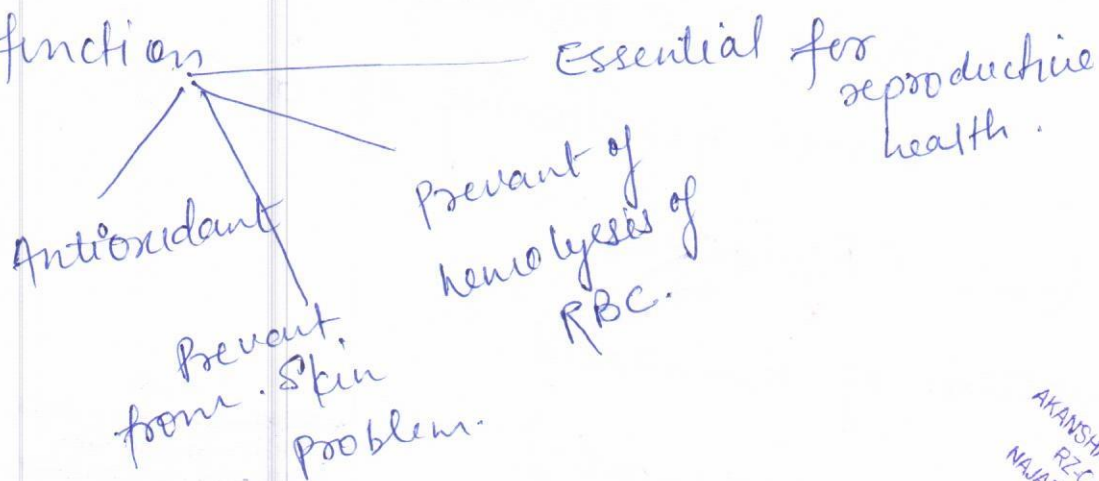 function
Essential for
reproductive
health.
Antioxidant
Prevant of
hemolyesis of
RBC.
Prevant
from. Skin
problem.
AKANSH
RZ-
NAJA